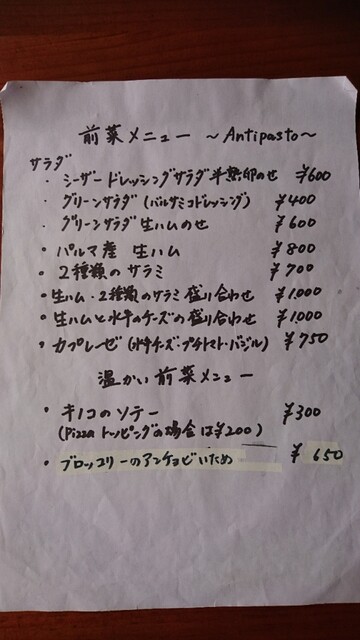 前菜メニュー ～Antipasto～
サラダ
・ シーザードレッシングサラダ半熟卵のせ ¥600
・ グリーンサラダ(バルサミコドレッシング) ¥400
・ グリーンサラダ 生ハムのせ ¥600
・ パルマ産 生ハム ¥800
・ 2種類のサラミ ¥700
・生ハム・2種類のサラミ盛り合わせ ¥1,000
・生ハムと水牛のチーズの盛り合わせ ¥1000
・ カプレーゼ(水牛チーズ・プチトマト・バジル) ¥750
温かい前菜メニュー
・ キノコのソテー ¥300
(Pizzaトッピングの場合は¥200)
・ ブロッコリーのアンチョビいため ¥650